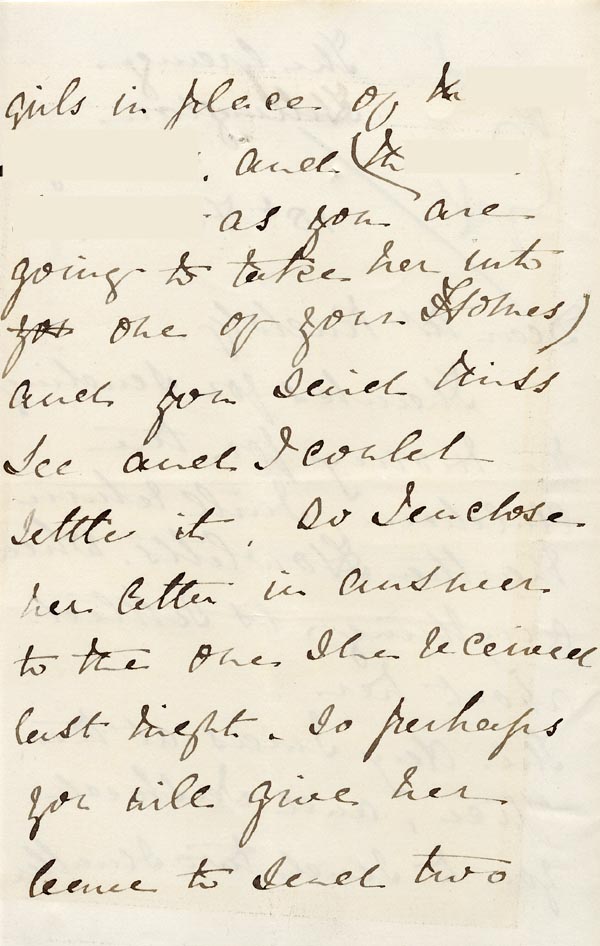 girls in place of the
. and (the
as you are
going to take her into
you one of your Homes)
and you said Miss
Lee and I could
settle it. So I enclose
her letter in answer
to the one she received
last night. So perhaps
you will give her
leave to send two